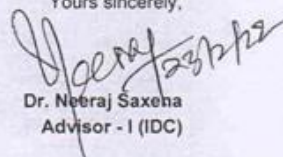 Yours sincerely,
Neeraj 23/2/22
Dr. Neeraj Saxena
Advisor - I (IDC)